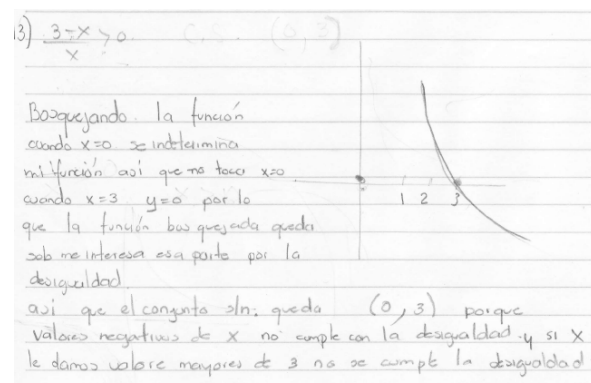 13) 3-x/x > 0 C.S. (0,3)
Bosquejando la función
cuando x=0 se indetermina
mi función asi que no toca x=0
cuando x=3 y=0 por lo
que la función bosquejada queda
solo me interesa esa parte por la
desigualdad.
1 2 3
asi que el conjunto sln: queda (0,3) porque
valores negativos de x no cumple con la desigualdad y si x
le damos valore mayores de 3 no se cumple la desigualdad